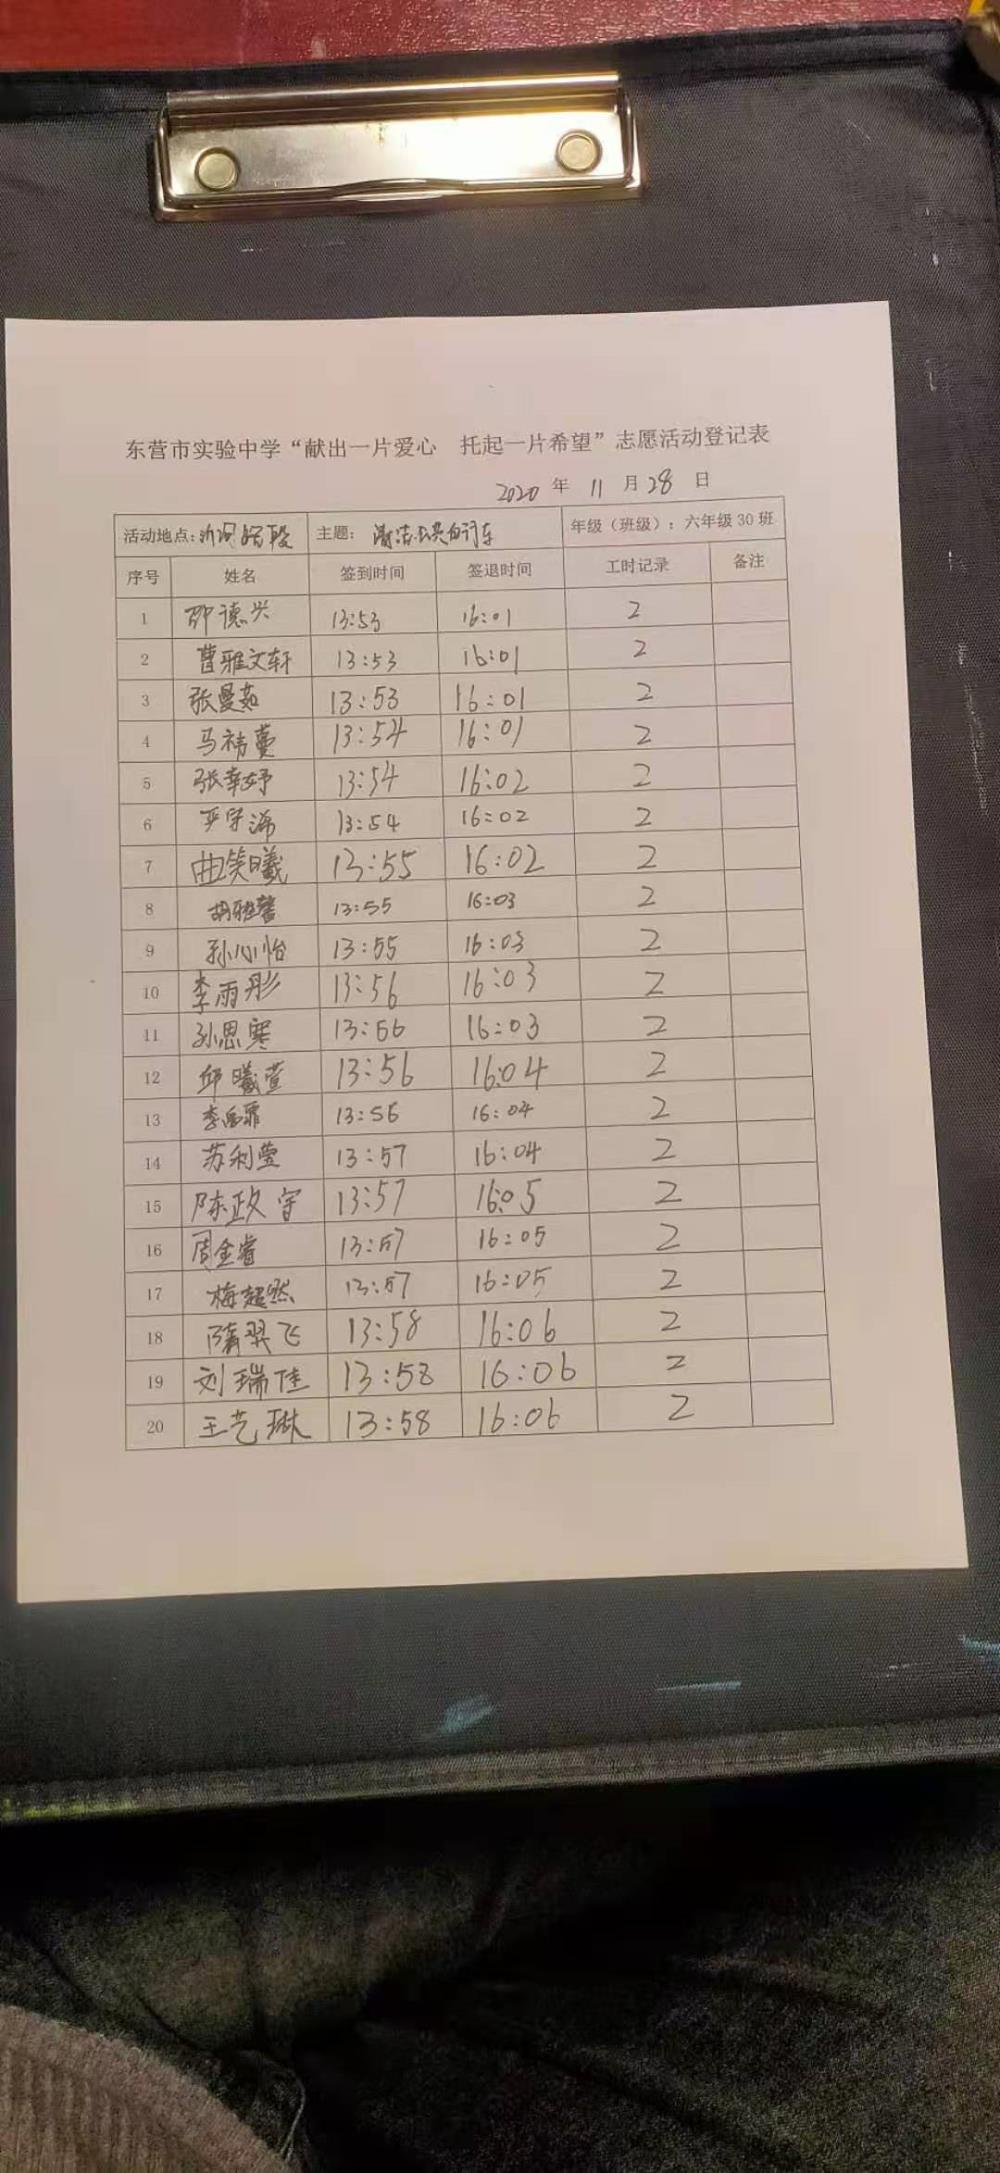 东营市实验中学“献出一片爱心 托起一片希望”志愿活动登记表
2020 年 11 月 28 日
活动地点：沂河路段 主题：清洁公共自行车 年级（班级）：六年级 30 班
序号 姓名 签到时间 签退时间 工时记录 备注
1 邵德兴 13:53 16:01 2
2 曹雅文轩 13:53 16:01 2
3 张曼茹 13:53 16:01 2
4 马祎蔓 13:54 16:01 2
5 张幸妤 13:54 16:02 2
6 严字涵 13:54 16:02 2
7 曲笑曦 13:55 16:02 2
8 胡雅馨 13:55 16:03 2
9 孙心怡 13:55 16:03 2
10 李雨彤 13:56 16:03 2
11 孙思寒 13:56 16:03 2
12 邱曦萱 13:56 16:04 2
13 李 13:56 16:04 2
14 苏利莹 13:57 16:04 2
15 陈政宇 13:57 16:05 2
16 周金睿 13:57 16:05 2
17 梅超然 13:57 16:05 2
18 隋羿飞 13:58 16:06 2
19 刘瑞佳 13:58 16:06 2
20 王艺琳 13:58 16:06 2